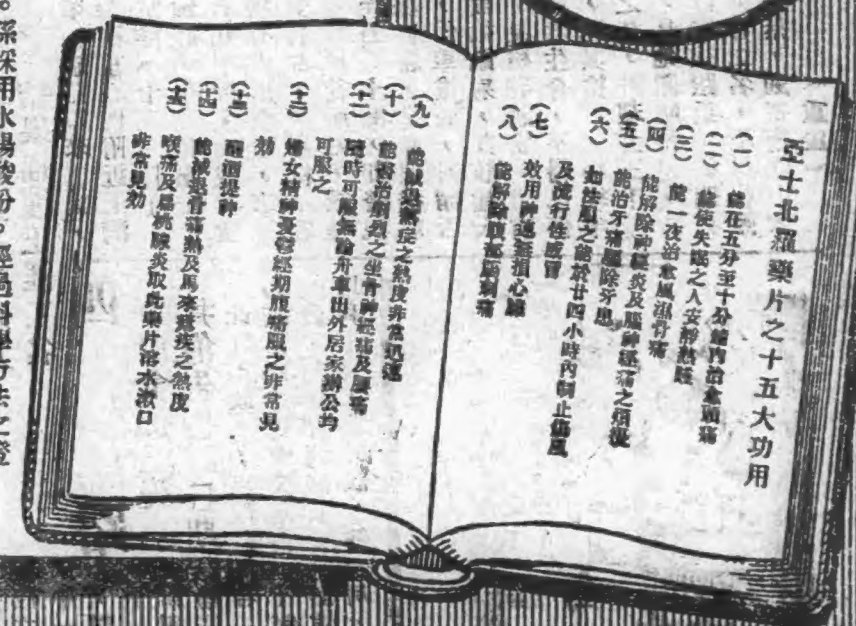 亞士北羅藥片之十五大功用
(一) 能在五分至十分鐘內治愈頭痛
(二) 能使失眠之人安靜熟睡
(三) 能一夜治愈風濕骨痛
(四) 能解除神經炎及腦神經痛之煩擾
(五) 能治牙痛驅除牙患
(六) 如性服之能於廿四小時內制止傷風
及流行性感冒
(七) 效用神速無損心臟
(八) 能解除腹部刺痛
(九) 能減退熱症之熱度非常迅速
(十) 能醫治劇烈之坐骨神經痛及腰痛
(十一) 隨時可服無論舟車出外居家辦公均
可服之
(十二) 婦女精神憂鬱經期腹痛服之非常見
効
(十三) 醒酒提神
(十四) 能減退骨痛熱及馬來瘧疾之熱度
(十五) 喉痛及扁桃腺炎取此藥片溶水漱口
非常見効
。係採用水楊酸份。經過科學方法之證